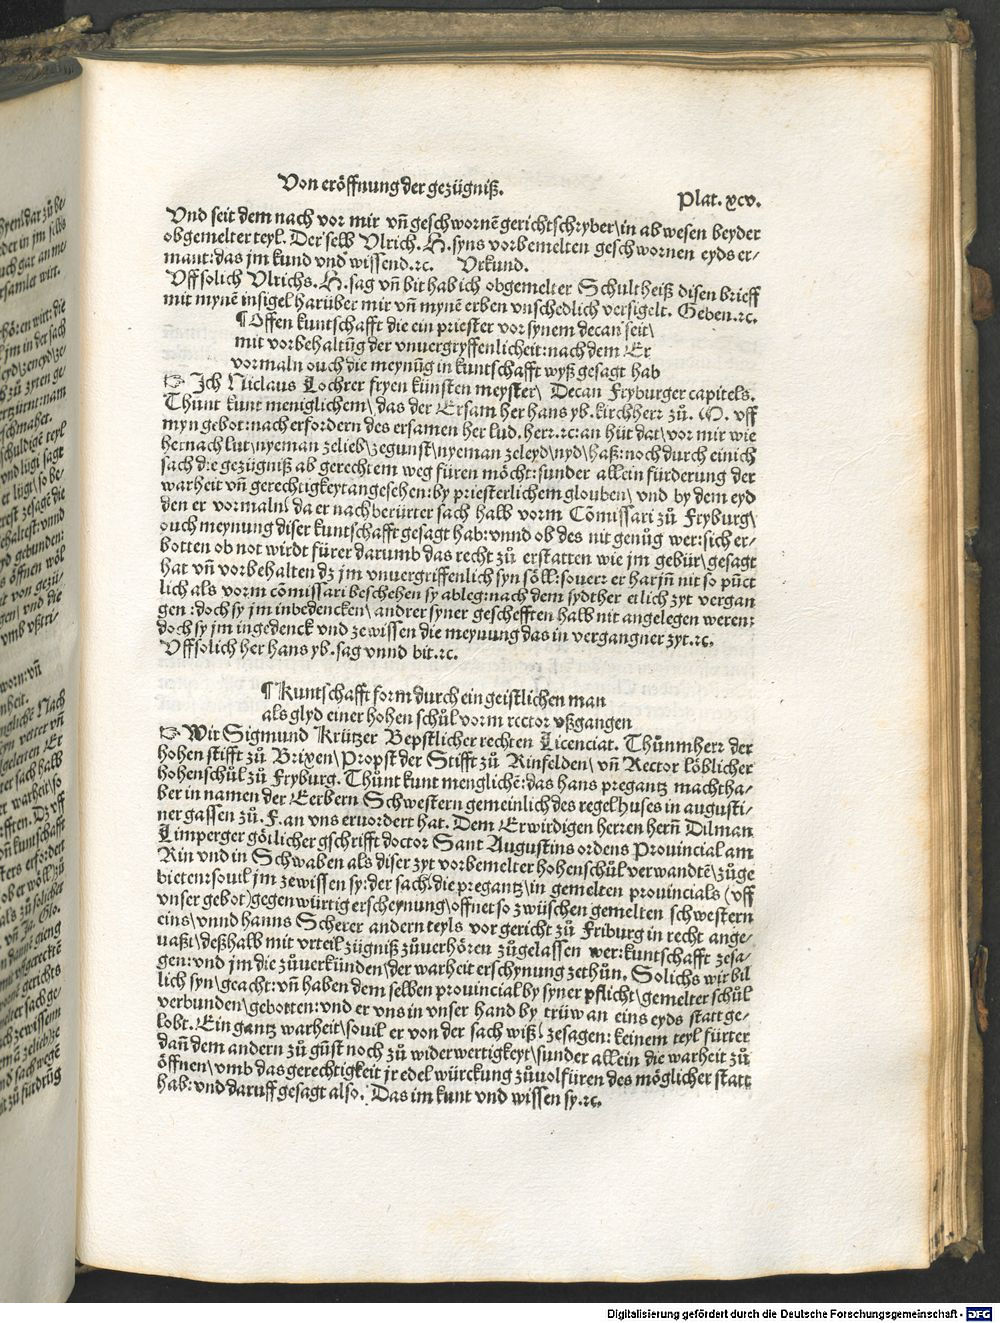 Von eröffnung der gezügniß.
Plat. xcv.
Vnd seit dem nach vor mir vñ geschwornē gerichtschryber/in ab wesen beyder
obgemelter teyl. Der selb Vlrich. H. syns vorbemelten geschwornen eyds er-
mant: das jm kund vnd wissend.⁊c. Vrkund.
Vff solich Vlrichs. H. sag vñ bit hab ich obgemelter Schultheiß disen brieff
mit mynē insigel harüber mir vñ mynē erben vnschedlich versigelt. Geben.⁊c.
¶ Offen kuntschafft die ein priester vor synem decan seit\
mit vorbehaltūg der vnuergryffenlicheit: nach dem Er
vormaln ouch die meynūg in kuntschafft wyß gesagt hab
☞ Ich Niclaus Lochrer fryen künsten meyster\ Decan Fryburger capitels.
Thůnt kunt meniglichem\ das der Ersam her hans yb. kirchherr zů. M. vff
myn gebot: nach erfordern des ersamen her lud. herr.⁊c: an hüt dat\ vor mir wie
hernach lut\ nyeman zelieb\ zegunst\ nyeman zeleyd\ nyd\ haß: noch durch einich
sach die gezügniß ab gerechtem weg füren möcht: sunder allein fürderung der
warheit vñ gerechtigkeyt angesehen: by priesterlichem glouben\ vnd by dem eyd
den er vormaln\ da er nach berürter sach halb vorm Cōmissari zů Fryburg\
ouch meynung diser kuntschafft gesagt hab: vnnd ob des nit genůg wer: sich er-
botten ob not wirdt fürer darumb das recht zů erstatten wie jm gebür\ gesagt
hat vñ vorbehalten dz jm vnuergriffenlich syn söll: souer: er harjñ nit so pūct
lich als vorm cōmissari beschehen sy ableg: nach dem sydther etlich zyt vergan
gen: doch sy jm inbedencken\ andrer syner geschefften halb nit angelegen weren:
doch sy jm ingedenck vnd ze wissen die meynung das in vergangner zyt.⁊c.
Vff solich her hans yb. sag vnnd bit.⁊c.
¶ Kuntschafft form durch ein geistlichen man
als glyd einer hohen schůl vorm rector vßgangen
☞ Wir Sigmund Krützer Bepstlicher rechten Licenciat. Thůmmherr der
hohen stifft zů Brixen\ Propst der Stifft zů Rinfelden\ vñ Rector löblicher
hohenschůl zů Fryburg. Thůnt kunt menglichē: das hans pregantz machtha-
ber in namen der Eerbern Schwestern gemeinlich des regelhuses in augusti-
ner gassen zů. F. an vns eruordert hat. Dem Erwirdigen herren herñ Dilman
Limperger götlicher gschrifft doctor Sant Augustins ordens Prouincial am
Rin vnd in Schwaben als diser zyt vorbemelter hohenschůl verwandtē\ zů ge
bieten: souil jm ze wissen sy: der sach\ die pregantz\ in gemelten prouincials (vff
vnser gebot) gegenwürtig erscheynung\ offnet so zwüschen gemelten schwestern
eins\ vnnd hanns Scherer andern teyls vor gericht zů Friburg in recht ange-
uaßt\ deßhalb mit vrteil zügniß zůuerhören zůgelassen wer: kuntschafft zesa-
gen: vnd jm die zůuerkünden\ der warheit erschynung zethůn. Solichs wir bil
lich syn\ geacht: vñ haben dem selben prouincial by syner pflicht\ gemelter schůl
verbunden\ gebotten: vnd er vns in vnser hand by trüw an eins eyds statt ge-
lobt. Ein gantz warheit\ souil er von der sach wiß\ zesagen: keinem teyl fürter
dañ dem andern zů gūst noch zů widerwertigkeyt\ sunder allein die warheit zů
öffnen\ vmb das gerechtigkeit jr edel würckung zůuolfüren des möglicher statt
hab: vnd daruff gesagt also. Das im kunt vnd wissen sy.⁊c.
Digitalisierung gefördert durch die Deutsche Forschungsgemeinschaft - DFG